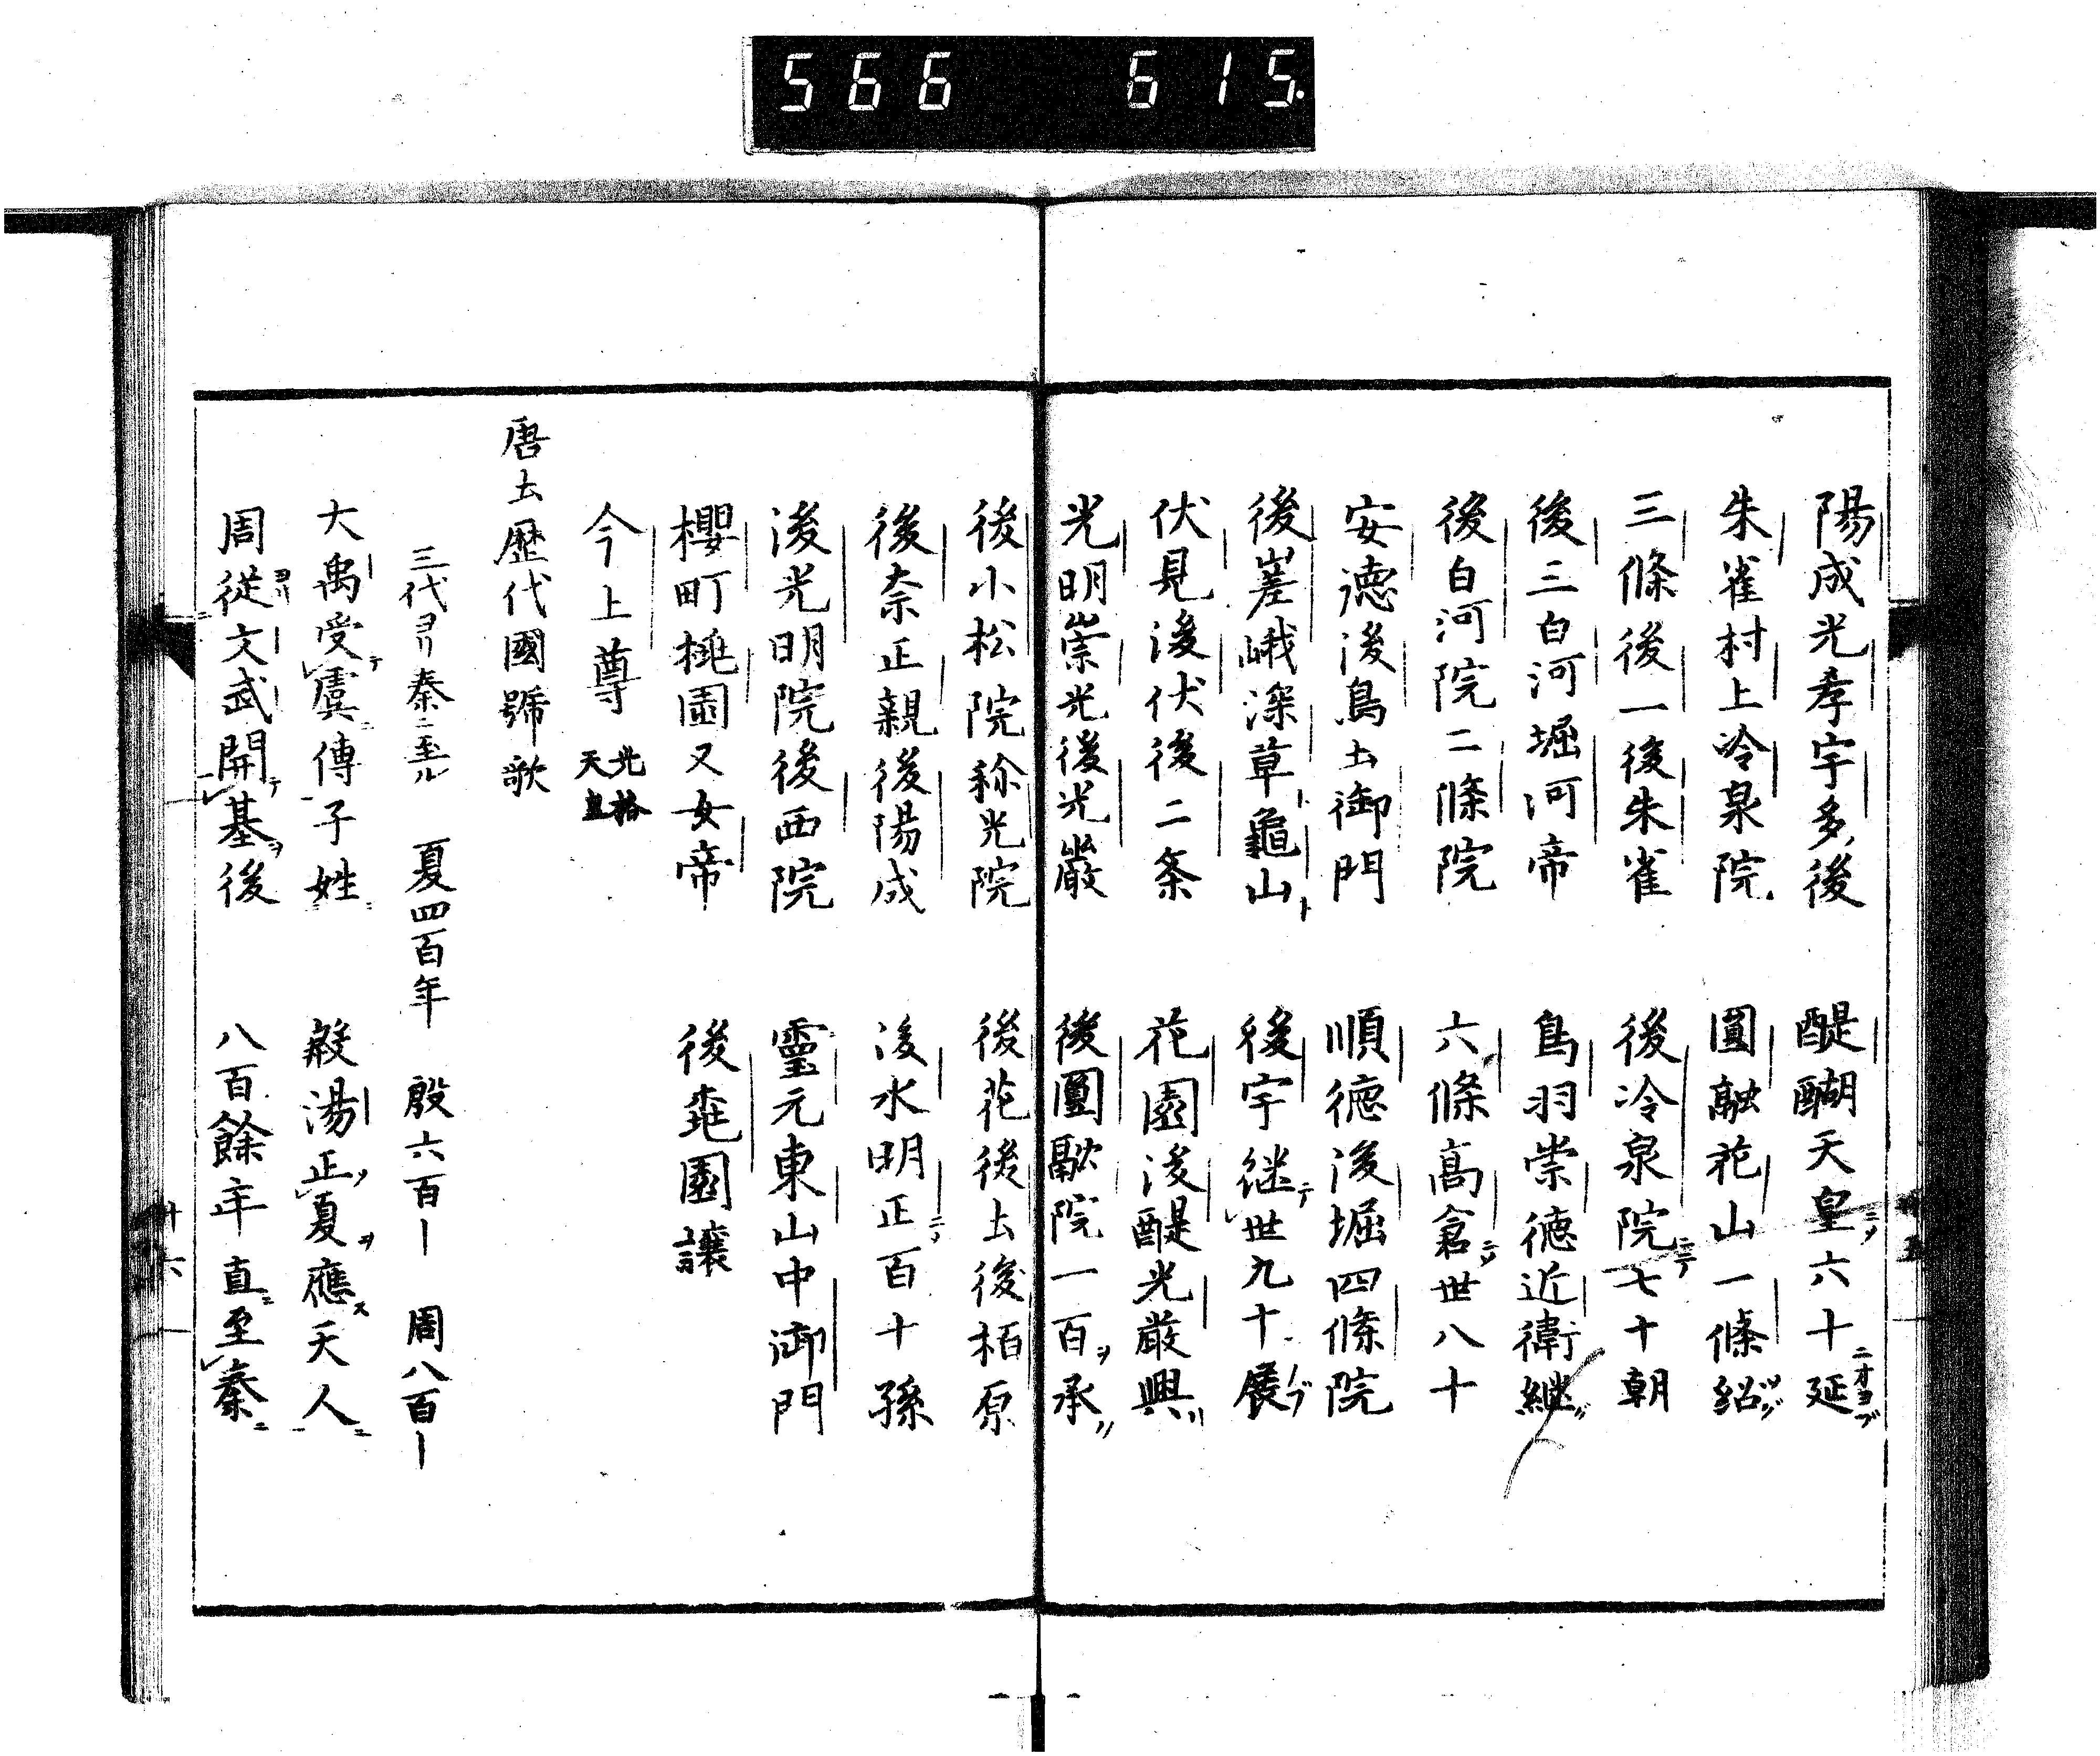 566 615.
陽成光孝宇多後 醍醐天皇六十延
朱雀村上冷泉院 圓融花山一條紹
三條後一後朱雀 後冷泉院七十朝
後三白河堀河帝 鳥羽崇徳近衛継
後白河院二條院 六條高倉世八十
安徳後鳥土御門 順徳後堀四條院
後嵯峨深草龜山 後宇継世九十展
伏見後伏後二条 花園後醍光厳興
光明崇光後光嚴 後圓融院一百承
後小松院称光院 後花後土後柏原
後奈正親後陽成 後水明正百十孫
後光明院後西院 靈元東山中御門
櫻町桃園又女帝 後桃園讓
今上尊
唐土歴代國號歌
三代ヨリ秦ニ至ル 夏四百年 殷六百ー 周八百ー
大禹受虞傳子姓 殷湯正夏應天人
周従文武開基後 八百餘年直至秦
十六